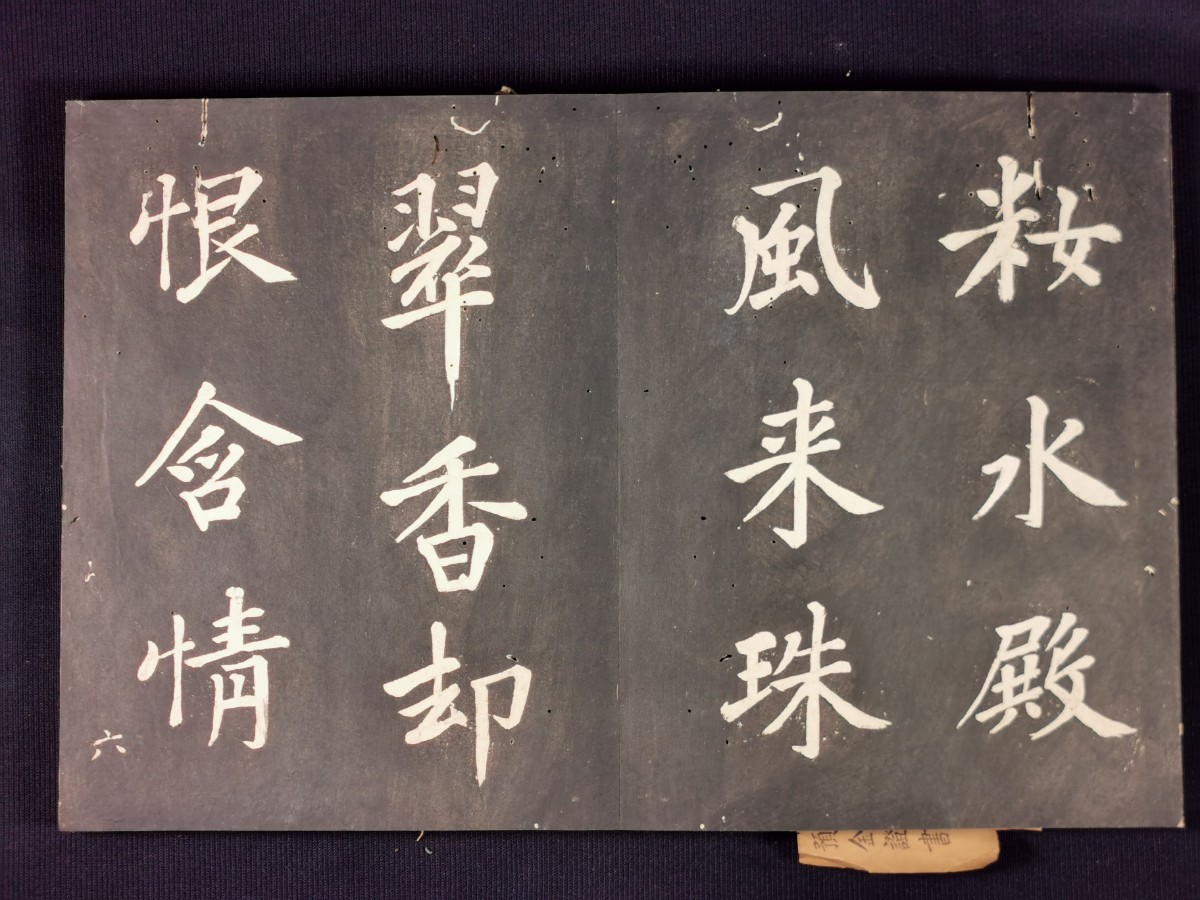 籹水殿
風来珠
翠香却
恨含情
六
預金證書